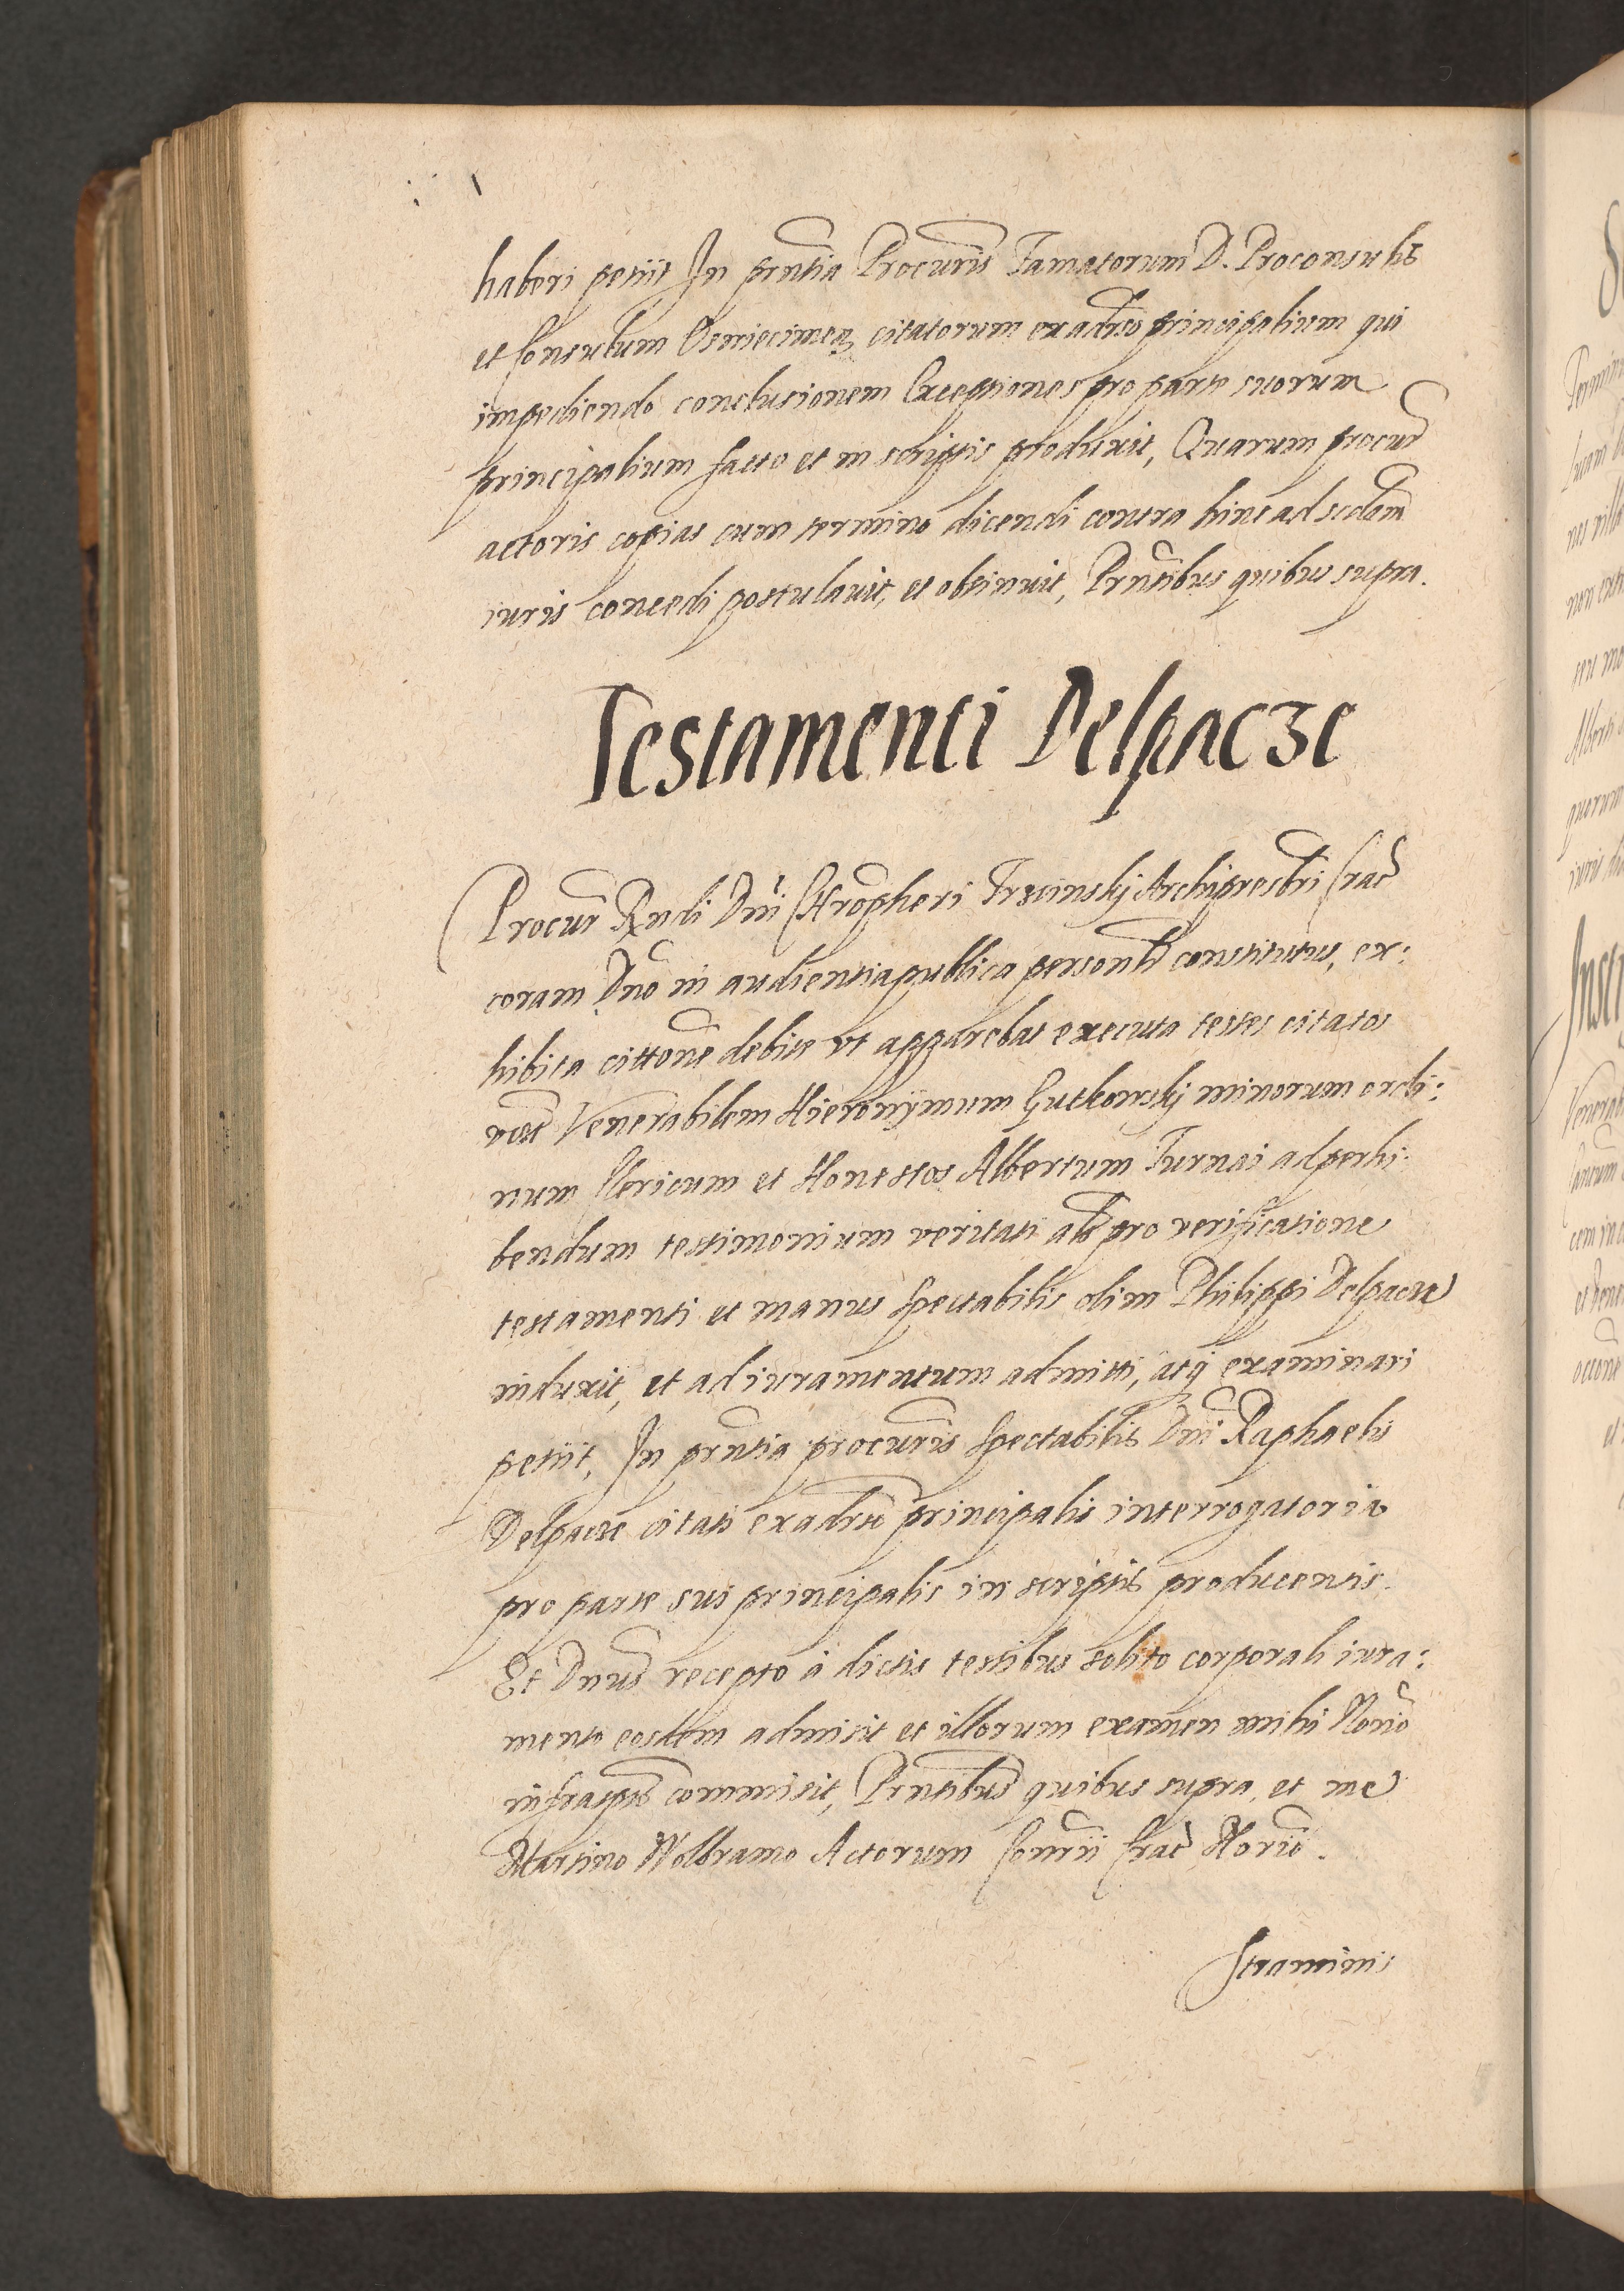 haberi petiit In prntia Procuris Famatorum D. Proconsulis
et Consulum Osniecimen citatorum exadrso principalium qui
impediendo conclusionem Exceptiones pro parte suorum
principalium facto et in scriptis produxit, Quarum procur
actoris copias cum termino dicendi contra hinc ad sedam
iuris concedi postulavit, et obtinuit, Prntibus quibus supra.
Testamenti Delpacze
Procur Rndi Dni Chropheri Trzcinskj Archipresbri Crac
coram Dno in audientia publica personlr constitutus, ex:
hibita cittone debite vt apparebat executa testes citatos
Venerabilem Hieronÿmum Gutkowskj minorum ordi:
num Clericum et Honestos Albertum Furnai ad perhi:
bendum testimonium veritati als pro verificatione
testamenti et manus Spectabilis olim Philippi Delpacze
induxit, et ad iuramentum admitti, atq examinari
petiit, In prntia procuris Spectabilis Dni Raphaelis
Delpacze citati exadrso principalis interrogatoria
pro parte sui principalis in scriptis producentis.
Et Dnus recepto à dictis testibus solito corporali iura:
mento eosdem admisit et illorum examen mihi Norio
infrascpto commisit, Prntibus quibus supra, et me
Martino Wolbramo Actorum Consrii Crac Norio.
Straminis